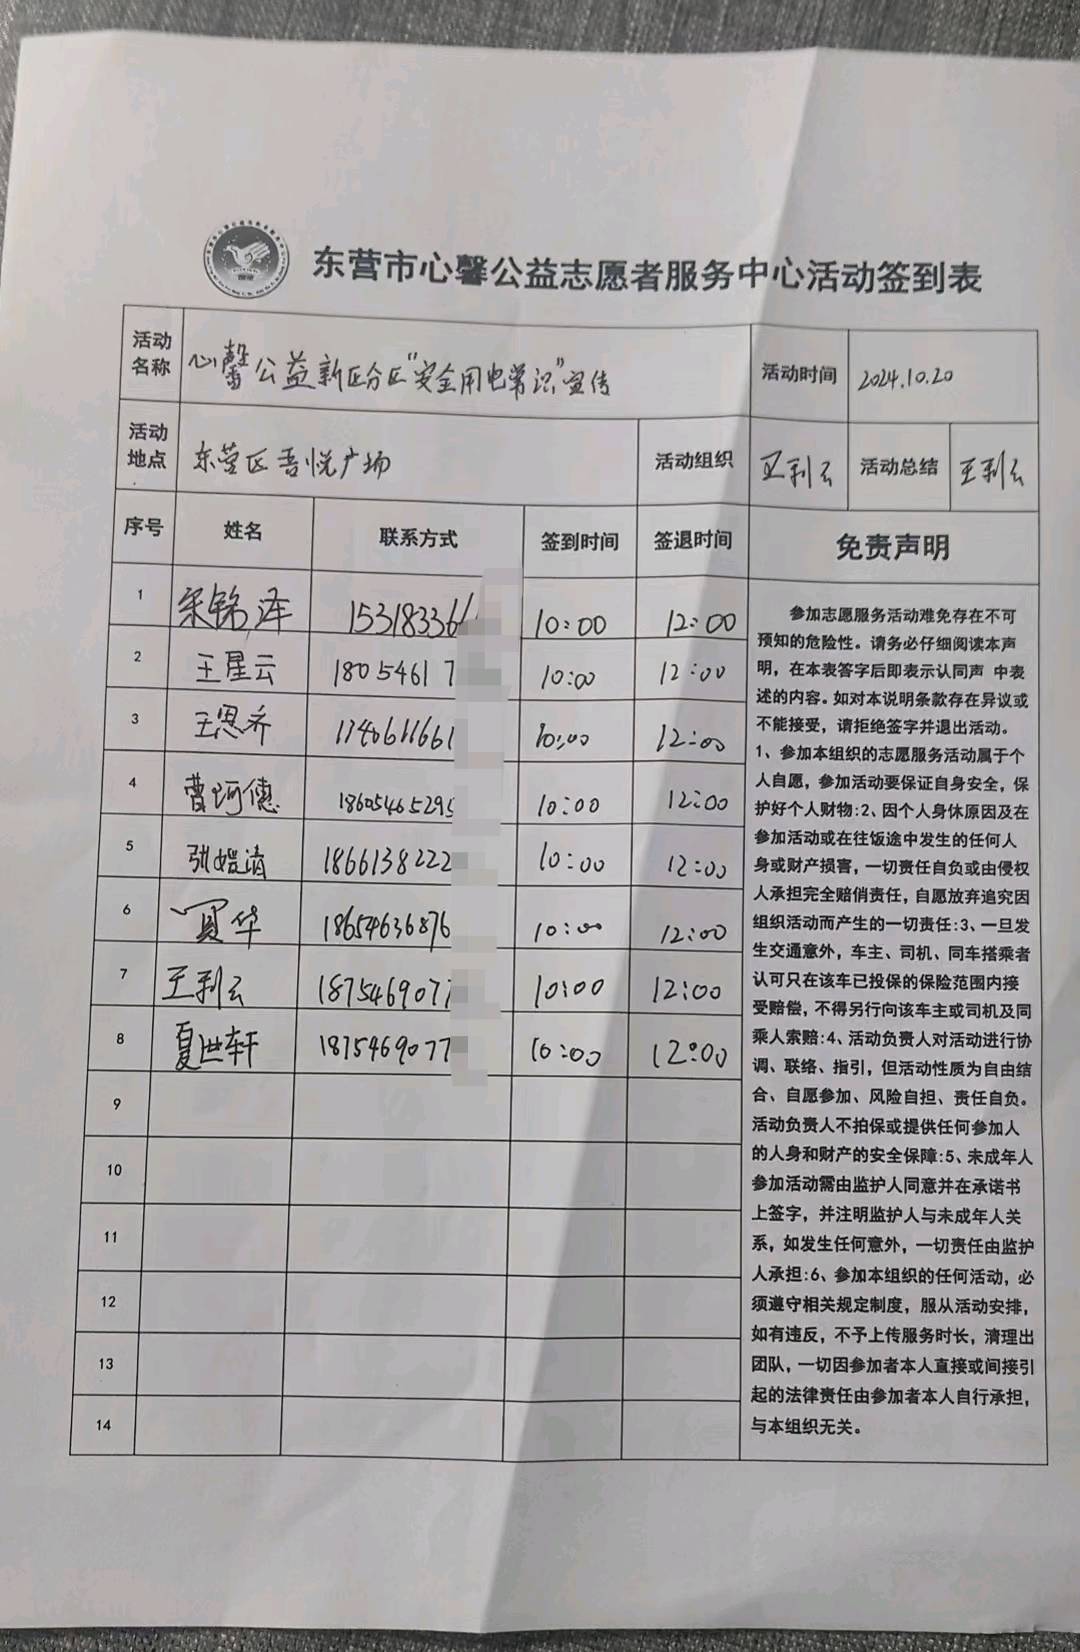 东营市心馨公益志愿者服务中心活动签到表
活动名称 心馨公益新区分区"安全用电常识"宣传 活动时间 2024.10.20
活动地点 东营区吾悦广场 活动组织 王利云 活动总结 王利云
序号 姓名 联系方式 签到时间 签退时间 免责声明
1 宋铭泽 153183366 10:00 12:00
2 王星云 18054617 10:00 12:00
3 王恩乔 10:00 12:00
4 曹珂僡 18605465295 10:00 12:00
5 张 清 1866138222 10:00 12:00
6 贾华 18654636876 10:00 12:00
7 王利云 1875469077 10:00 12:00
8 夏世轩 1875469077 10:00 12:00
9
10
11
12
13
14
参加志愿服务活动难免存在不可
预知的危险性。请务必仔细阅读本声
明，在本表答字后即表示认同声 中表
述的内容。如对本说明条款存在异议或
不能接受，请拒绝签字并退出活动。
1、参加本组织的志愿服务活动属于个
人自愿，参加活动要保证自身安全，保
护好个人财物:2、因个人身休原因及在
参加活动或在往饭途中发生的任何人
身或财产损害，一切责任自负或由侵权
人承担完全赔俏责任，自愿放弃追究因
组织活动而产生的一切责任:3、一旦发
生交通意外，车主、司机、同车搭乘者
认可只在该车已投保的保险范围内接
受赔偿，不得另行向该车主或司机及同
乘人索赔:4、活动负责人对活动进行协
调、联络、指引，但活动性质为自由结
合、自愿参加、风险自担、责任自负。
活动负责人不拍保或提供任何参加人
的人身和财产的安全保障:5、未成年人
参加活动需由监护人同意并在承诺书
上签字，并注明监护人与未成年人关
系，如发生任何意外，一切责任由监护
人承担:6、参加本组织的任何活动，必
须遵守相关规定制度，服从活动安排，
如有违反，不予上传服务时长，清理出
团队，一切因参加者本人直接或间接引
起的法律责任由参加者本人自行承担，
与本组织无关。